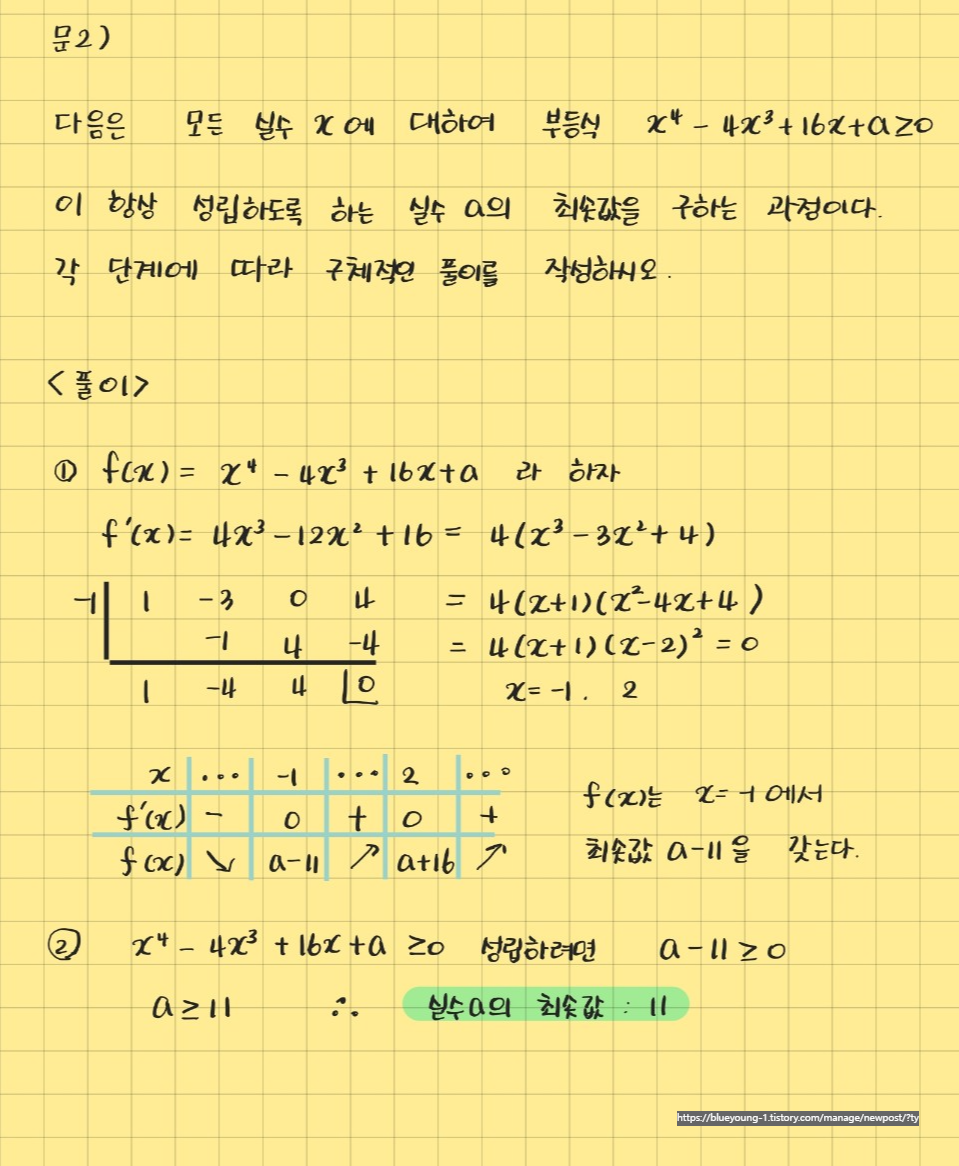 문2)
다음은 모든 실수 x에 대하여 부등식 x⁴ - 4x³ + 16x + a ≥ 0
이 항상 성립하도록 하는 실수 a의 최솟값을 구하는 과정이다.
각 단계에 따라 구체적인 풀이를 작성하시오.
<풀이>
① f(x) = x⁴ - 4x³ + 16x + a 라 하자
f'(x) = 4x³ - 12x² + 16 = 4(x³ - 3x² + 4)
-1 1 -3 0 4 = 4(x+1)(x²-4x+4)
-1 4 -4 = 4(x+1)(x-2)² = 0
1 -4 4 0 x = -1. 2
x ... -1 ... 2 ...
f'(x) - 0 + 0 +
f(x) ↘ a-11 ↗ a+16 ↗
f(x)는 x = -1에서
최솟값 a-11을 갖는다.
② x⁴ - 4x³ + 16x + a ≥ 0 성립하려면 a - 11 ≥ 0
a ≥ 11 ∴ 실수 a의 최솟값 : 11
https://blueyoung-1.tistory.com/manage/newpost/?ty